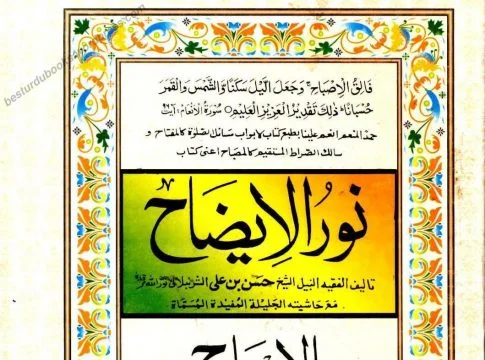 besturdubooks.
فَالِقُ الْاِصْبَاحِ ۚ وَجَعَلَ الَّيْلَ سَكَنًا وَّالشَّمْسَ وَالْقَمَرَ
حُسْبَانًا ؕ ذٰلِكَ تَقْدِيْرُ الْعَزِيْزِ الْعَلِيْمِ ○ سُوْرَةُ الْاَنْعَامِ: آیت
حمدًا لمنعم انعم علينا بطبع كتاب لابواب مسائل الصلوٰة كالمفتاح و
سالك الصراط المستقيم كالمصباح اعنى كتاب
نورُ الإيضاح
تاليف الفقيه النبيل الشيخ حسن بن على الشرنبلالى نور الله مرقدهٗ
مَع حَاشيته الجَليلة المُفيدة المُسَمَّاة